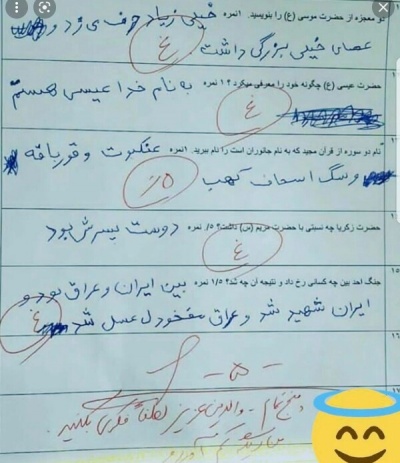 دو معجزه از حضرت موسی (ع) را بنویسید. ۱نمره خیلی زیاد حرف می زد و
عصای خیلی بزرگی داشت
غ
حضرت عیسی (ع) چگونه خود را معرفی میکرد؟ ۱ نمره به نام خدا عیسی هستم
غ
نام دو سوره از قرآن مجید که به نام جانوران است را نام ببرید. ۱نمره عنکبوت و قورباقه
و سگ اسحاف کهب
۰/۵
حضرت زکریا چه نسبتی با حضرت مریم (س) داشت؟ ۰/۵ نمره
دوست پسرش بود
غ
۱۵
جنگ احد بین چه کسانی رخ داد و نتیجه آن چه شد؟ ۱/۵ نمره بین ایران و عراق بود و
ایران شهید شد و عراق مفخود ل عسل شد
غ
۱۶
-۵-
۱۷
والدین عزیز لطفاً فکری بکنید